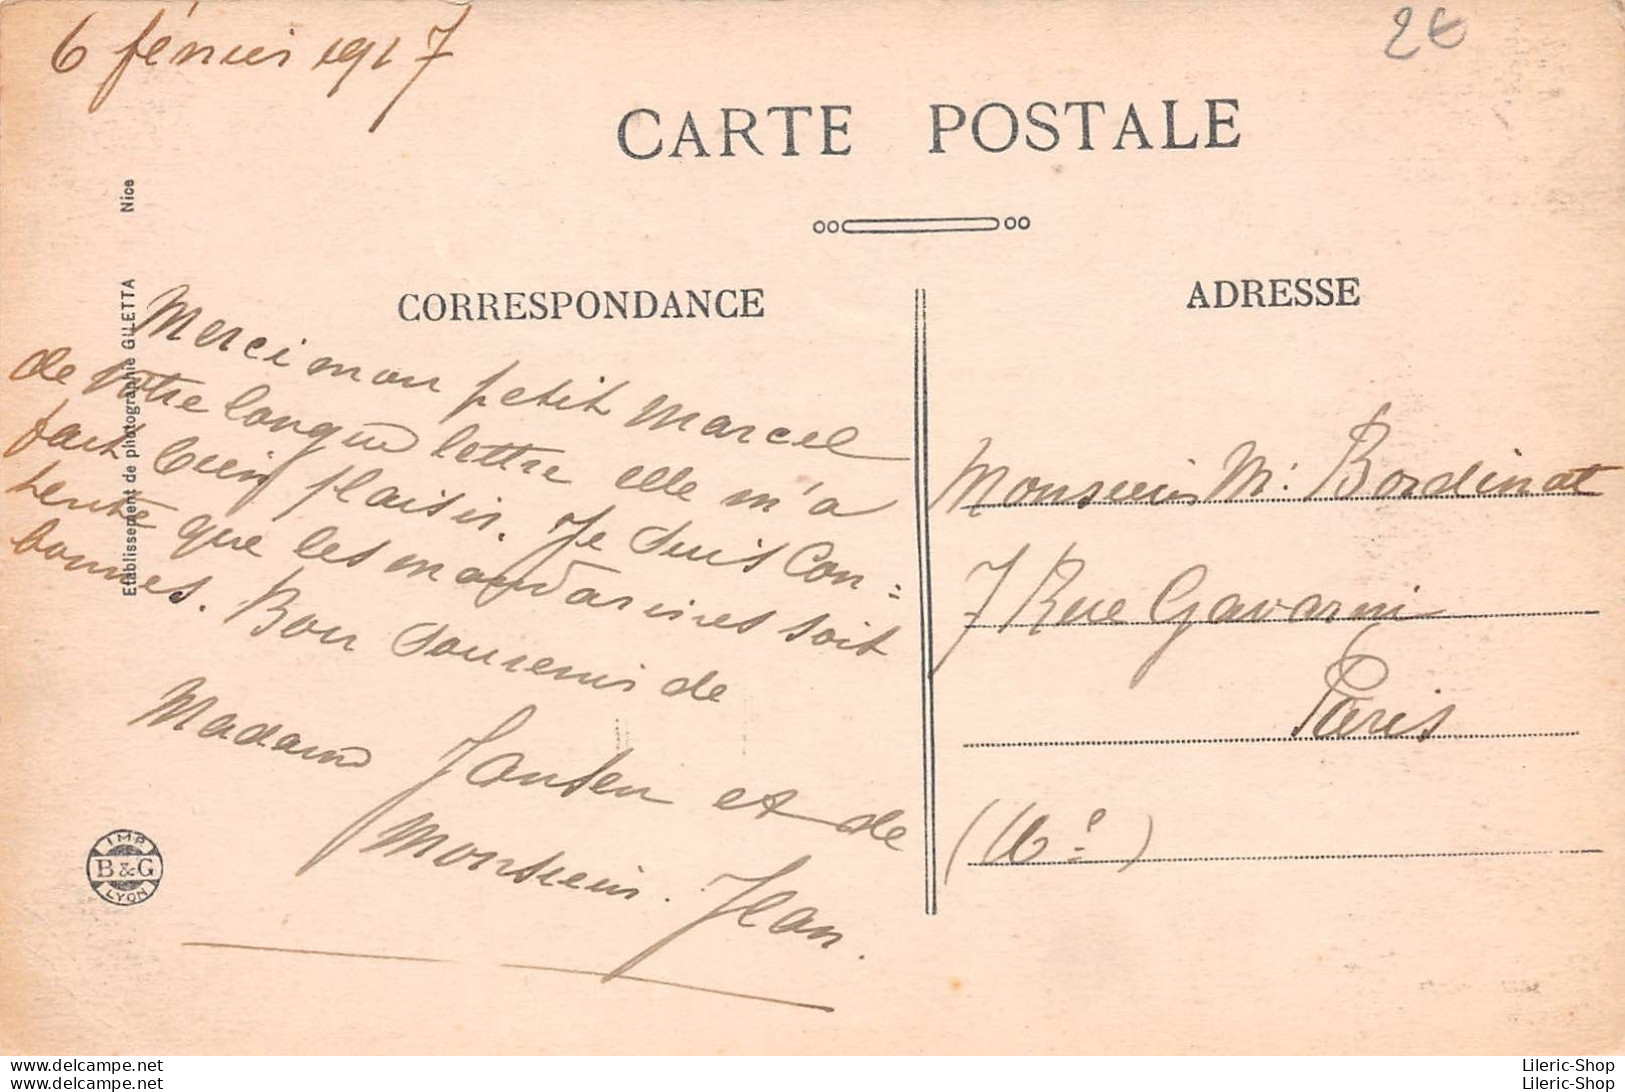 6 février 1917
2€
CARTE POSTALE
CORRESPONDANCE
ADRESSE
Etablissement de photographie GILETTA Nice
Merci mon petit Marcel
de votre longue lettre elle m'a
fait bien plaisir. Je suis con=
tente que les mandarines soit
bonnes. Bon souvenir de
Madame Jansen et de
Monsieur Jean.
Monsieur M. Bordinat
7 Rue Gavarni
Paris
(16e)
IMP
B & G
LYON
Lileric-Shop
Lileric-Shop
Lileric-Shop
Lileric-Shop